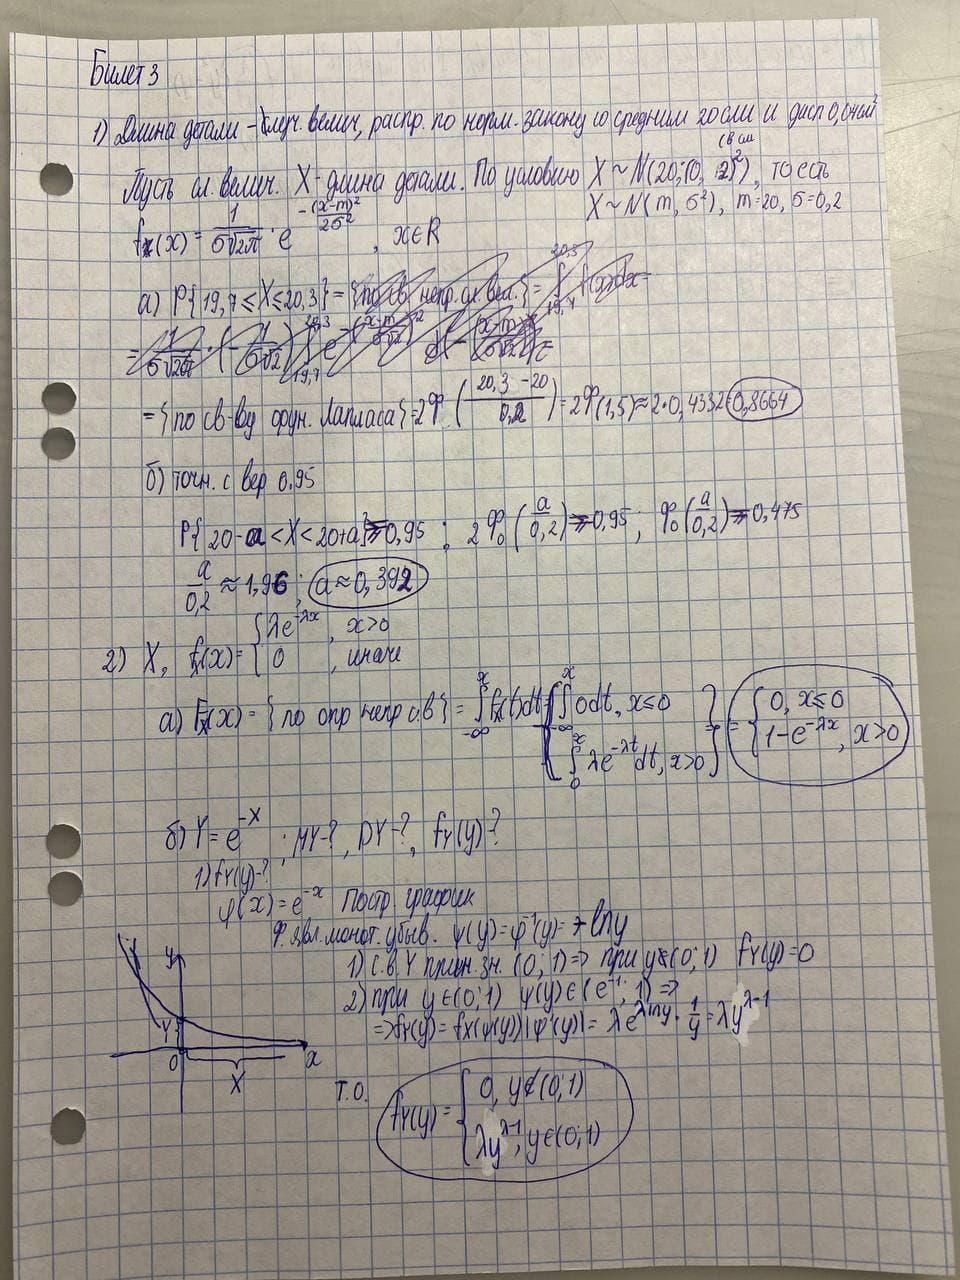 Билет 3
1) Длина детали - случ. велич, распр. по норм. закону со средним 20 см и дисп 0,04 см²
(в см
Пусть сл. велич. X - длина детали. По условию X ~ N(20; (0,2)²), то есть
X ~ N(m, σ²), m=20, σ=0,2
fx(x) = 1/(σ√2π) · e^(-(x-m)²/2σ²), x∈R
а) P{19,7 ≤ X ≤ 20,3} = {по св. непр. сл. вел.} = ∫ 19,7 20,3 f(x)dx =
= {по св-ву функ. Лапласа} = 2Ф₀((20,3-20)/0,2) = 2Ф₀(1,5) ≈ 2·0,4332 = 0,8664
б) точн. с вер 0.95
P{20-a < X < 20+a} = 0,95 ; 2Ф₀(a/0,2) = 0,95 ; Ф₀(a/0,2) = 0,475
a/0,2 ≈ 1,96 ; a ≈ 0,392
2) X, fx(x) = { λe^(-λx), x>0
0, иначе
а) Fx(x) = {по опр непр с.в} = ∫ -∞ x fx(t)dt = { ∫ -∞ x 0dt, x≤0
∫ 0 x λe^(-λt)dt, x>0 } = { 0, x≤0
1-e^(-λx), x>0
б) Y = e^(-X) ; MY-?, DY-?, fY(y)?
1) fY(y)-?
φ(x) = e^(-x) Постр. график
Ф. явл. монот. убыв. ψ(y) = φ⁻¹(y) = -lny
1) С.В. Y приним. зн. (0; 1) => при y∉(0; 1) fY(y) = 0
2) при y∈(0; 1) ψ(y)∈(e⁻¹; 1) =>
=> fY(y) = fX(ψ(y))|ψ'(y)| = λe^(λlny) · 1/y = λy^(λ-1)
y
Y
0
x
X
Т.О. fY(y) = { 0, y∉(0; 1)
λy^(λ-1), y∈(0; 1)